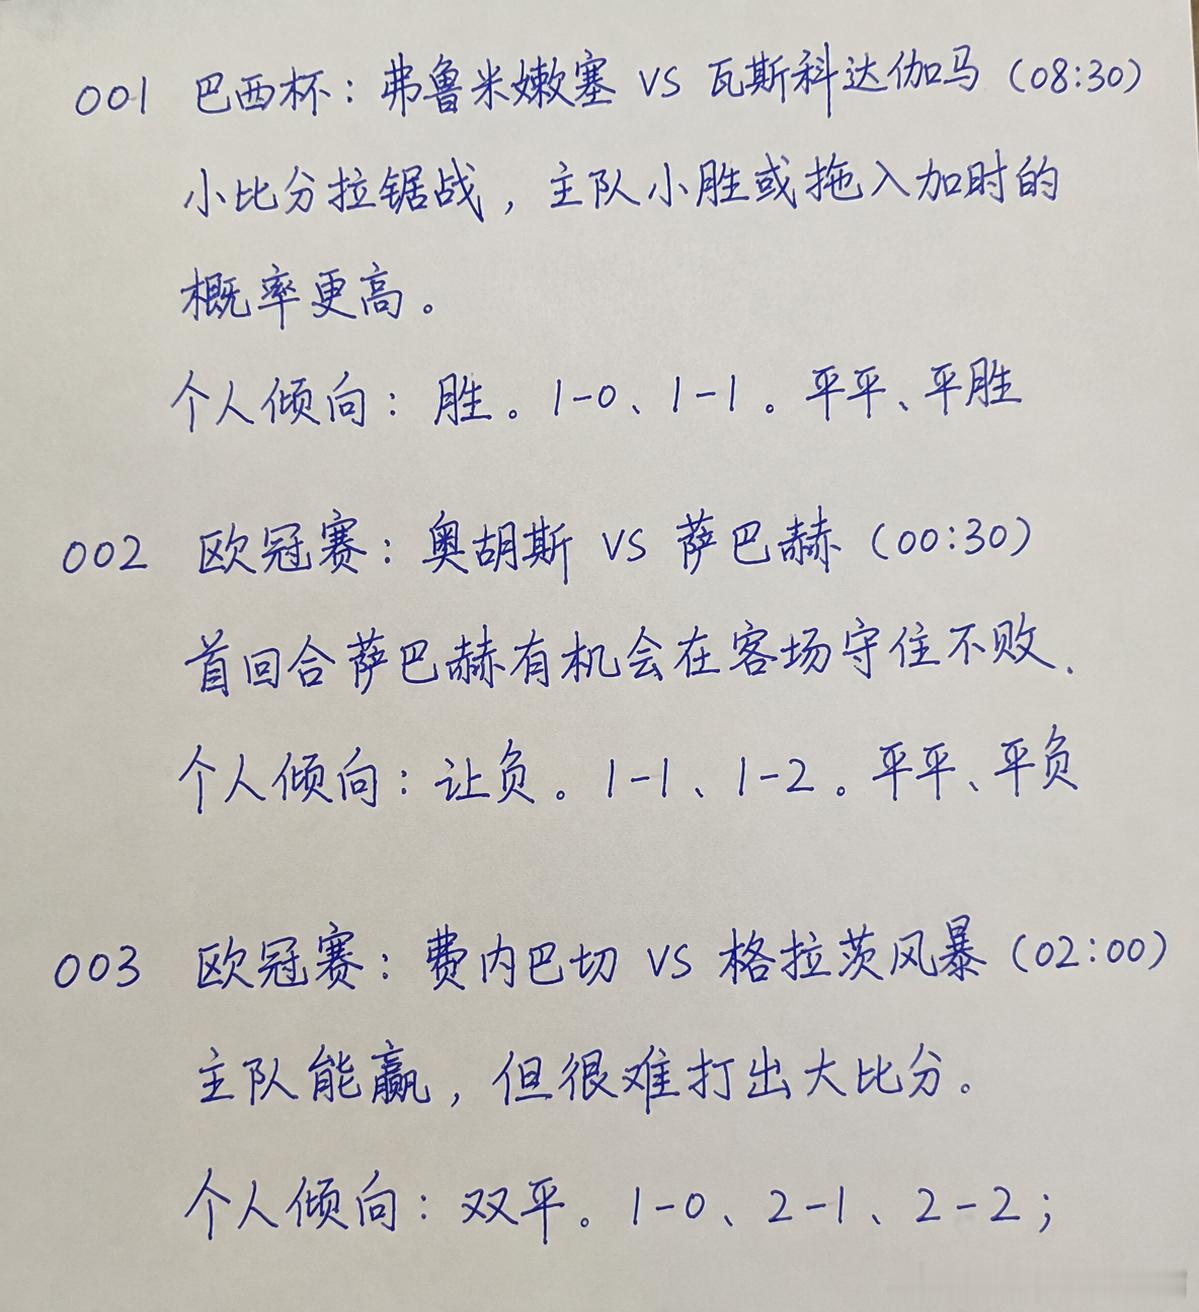 001 巴西杯：弗鲁米嫩塞 VS 瓦斯科达伽马（08:30）
小比分拉锯战，主队小胜或拖入加时的
概率更高。
个人倾向：胜。1-0、1-1。平平、平胜
002 欧冠赛：奥胡斯 VS 萨巴赫（00:30）
首回合萨巴赫有机会在客场守住不败.
个人倾向：让负。1-1、1-2。平平、平负
003 欧冠赛：费内巴切 VS 格拉茨风暴（02:00）
主队能赢，但很难打出大比分。
个人倾向：双平。1-0、2-1、2-2；